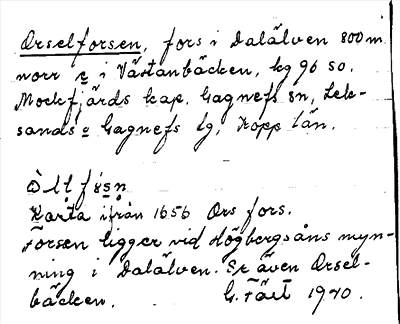 Orselforsen, fors i Dalälven 800 m
norr e i Västanbäcken, kg 96 SO.
Mockfjärds kap. Gagnefs sn, Lek-
sands o Gagnefs tg, Kopp län.
Karta ifrån 1656 Ors fors.
Forsen ligger vid Högbergsåns myn-
ning i Dalälven. Se även Orsel-
bäcken. G. Täst 1940.